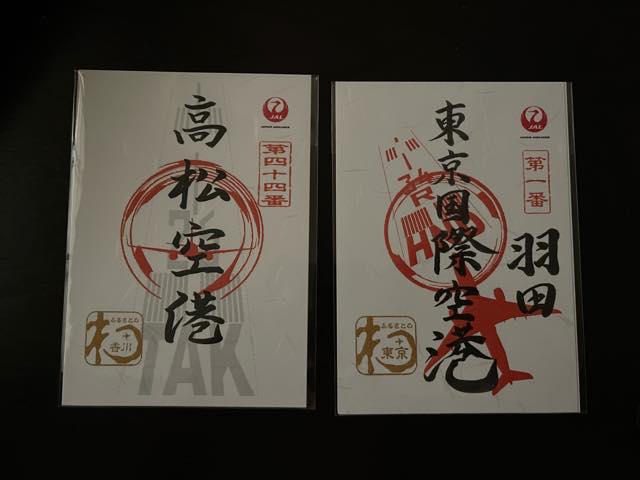 高松空港
JAL
JAPAN AIRLINES
第四十四番
TAK
ふるさとの
香川
東京国際空港
羽田
JAL
JAPAN AIRLINES
第一番
HND
ふるさとの
東京